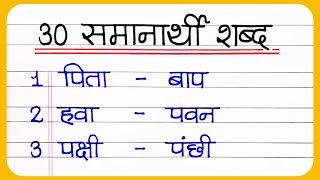 30 समानार्थी शब्द
1 पिता - बाप
2 हवा - पवन
3 पक्षी - पंछी